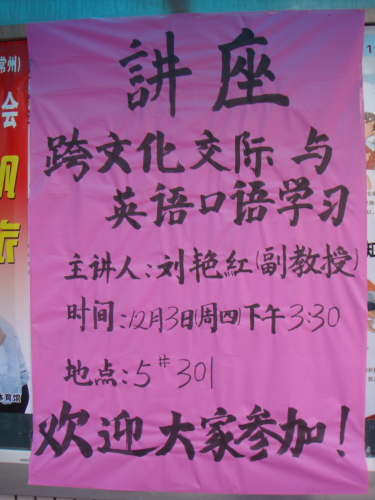 講座
跨文化交际与
英语口语学习
主讲人:刘艳紅(副教授)
时间:12月3日(周四)下午3:30
地点:5# 301
欢迎大家参加!
常州)
会
育馆